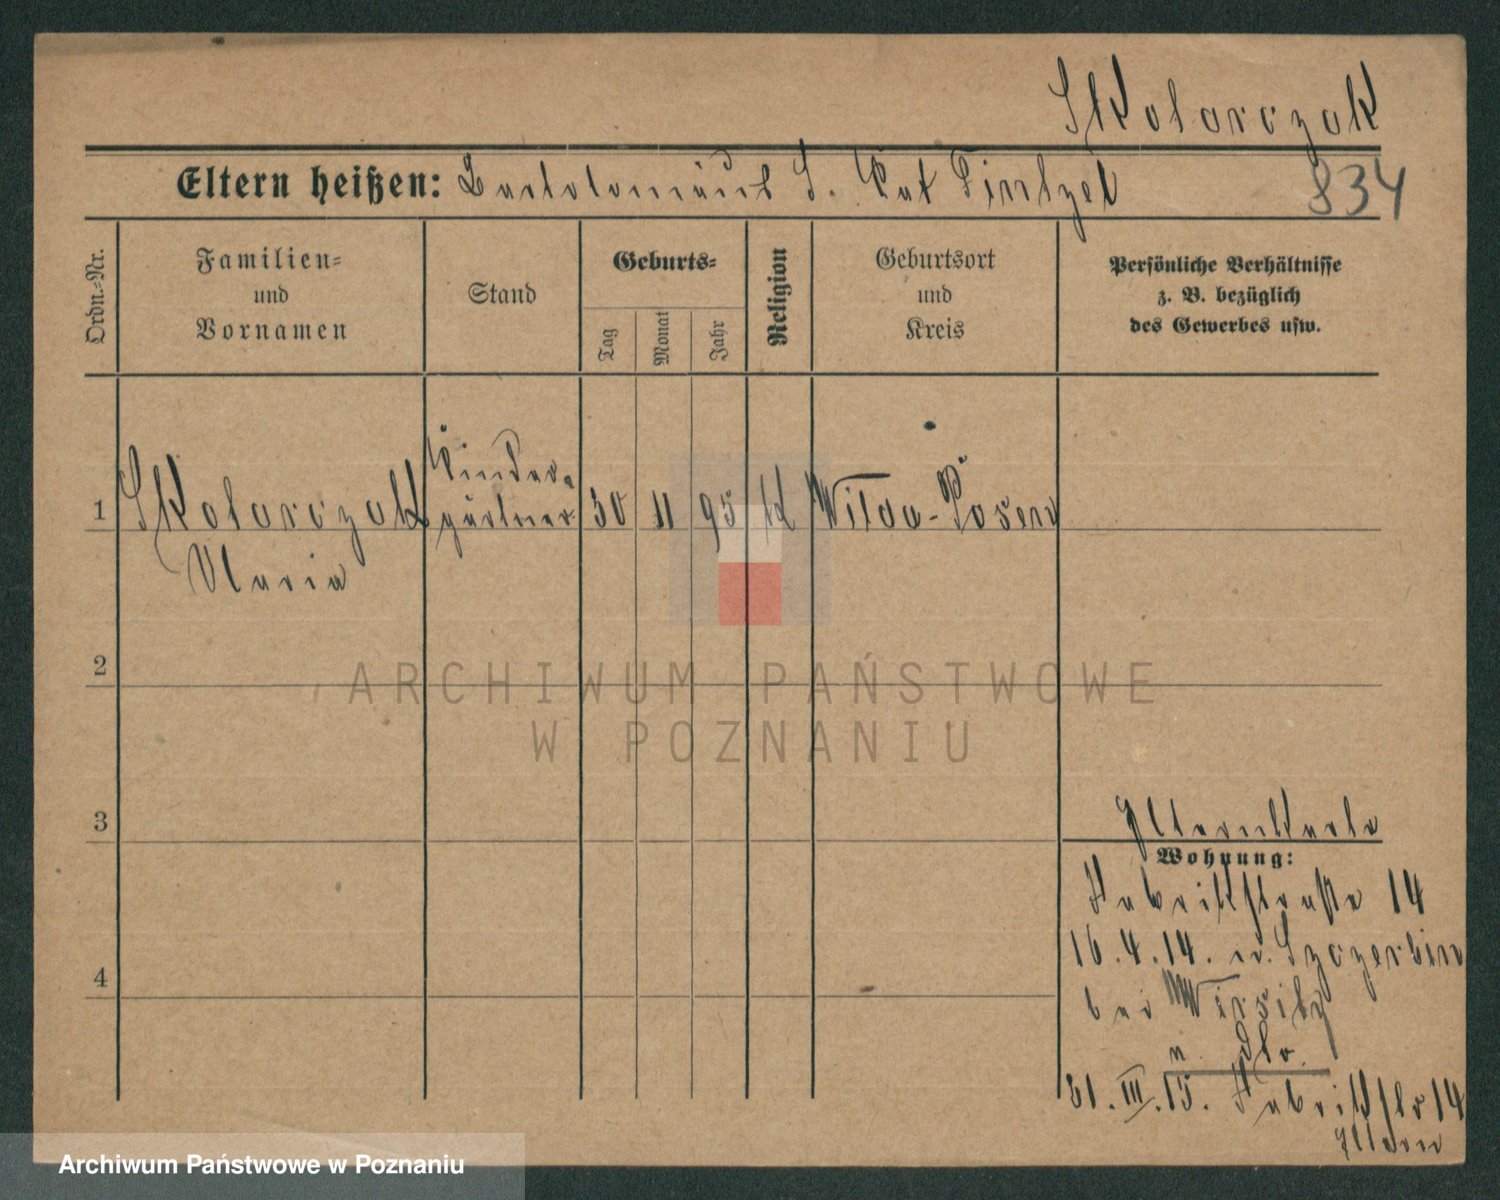 Skolarczak
Eltern heißen: Bartolomäus S. Kat Pintzel
834
Ordn.=Nr.
Familien=
und
Vornamen
Stand
Geburts=
Tag
Monat
Jahr
Religion
Geburtsort
und
Kreis
Persönliche Verhältnisse
z. B. bezüglich
des Gewerbes usw.
1
Skolarczak
Maria
Kinder-
gärtner
30 11 95 k Wilda-Posen
2
ARCHIWUM PAŃSTWOWE
W POZNANIU
3
Elternkarte
Wohnung:
Fabrikstraße 14
16.4.14. n. Szczerbin
4
bei Wirsitz
n.
31.III.15. Fabrikstr 14
Eltern
Archiwum Państwowe w Poznaniu